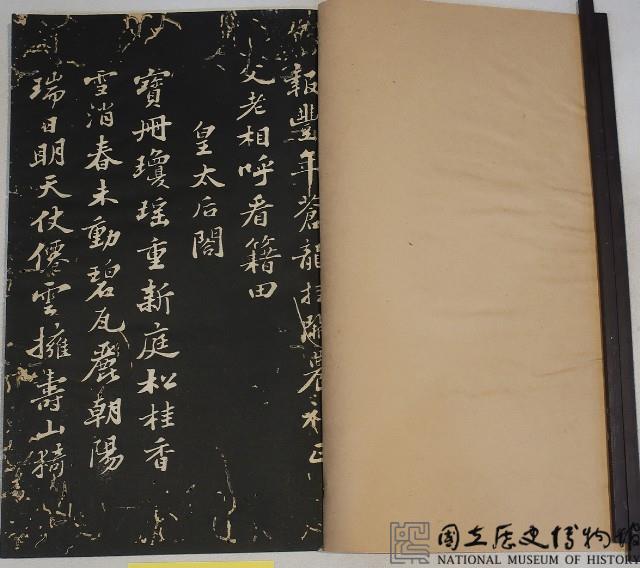 報豐年蒼龍挂闕農祥正
父老相呼看籍田
皇太后閣
寶冊瓊瑤重新庭松桂香
雪消春未動碧瓦麗朝陽
瑞日明天仗僊雲擁壽山猗
國立歷史博物館
NATIONAL MUSEUM OF HISTORY